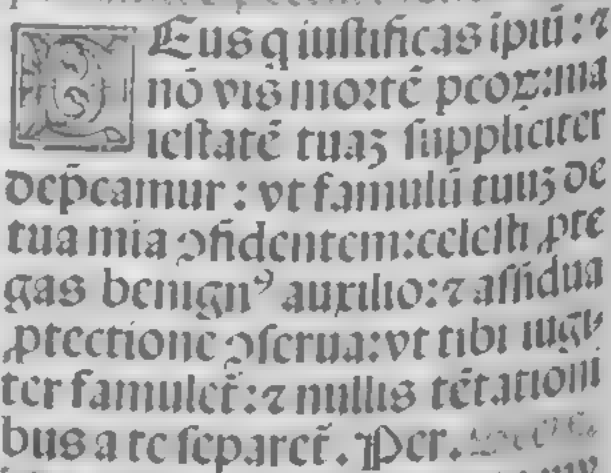 Eus q iustificas ipiũ: ⁊
nõ vis mortẽ pctoꝝ: ma
iestatẽ tuaʒ suppliciter
dep̃camur: vt famulũ tuũʒ de
tua mĩa ↄfidentem: celesti ꝓte
gas benignꝰ auxilio: ⁊ assidua
ꝓtectione ↄserua: vt tibi iugi
ter famulet̃: ⁊ nullis tẽtationi
bus a te separet̃. Per.